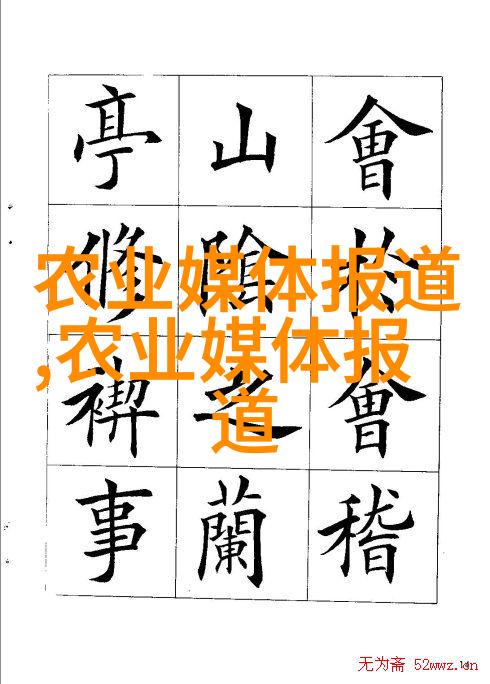 會於會稽
山陰之蘭
亭修禊事
农业媒体报道
,农业媒体报
道
无为斋 52wwz.cn